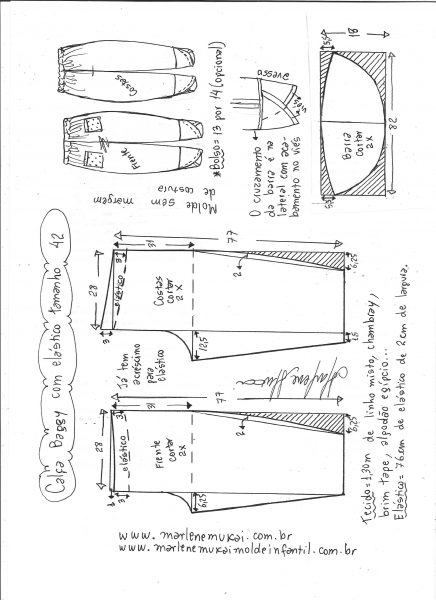 Calça Baggy com elástico tamanho 42
Molde sem margem
de costura
*Bolso = 13 por 14 (opcional)
costas
Frente
O cruzamento
da barra é na
lateral com aca-
bamento no viés
avesso
viés
81
5,5
Barra
cortar
2x
28
5,5
28
3
3
elástico
31
77
Costas
cortar
2x
12,5
2
6,25
Já tem
acréscimo
para
elástico
28
3
3
elástico
31
77
Frente
cortar
2x
6,25
2
6,25
Tecido = 1,30m de linho misto, chambray,
brim tape, algodão egípcio...
Elástico = 76cm de elástico de 2cm de largura.
www.marlenemukai.com.br
www.marlenemukaimoldeinfantil.com.br